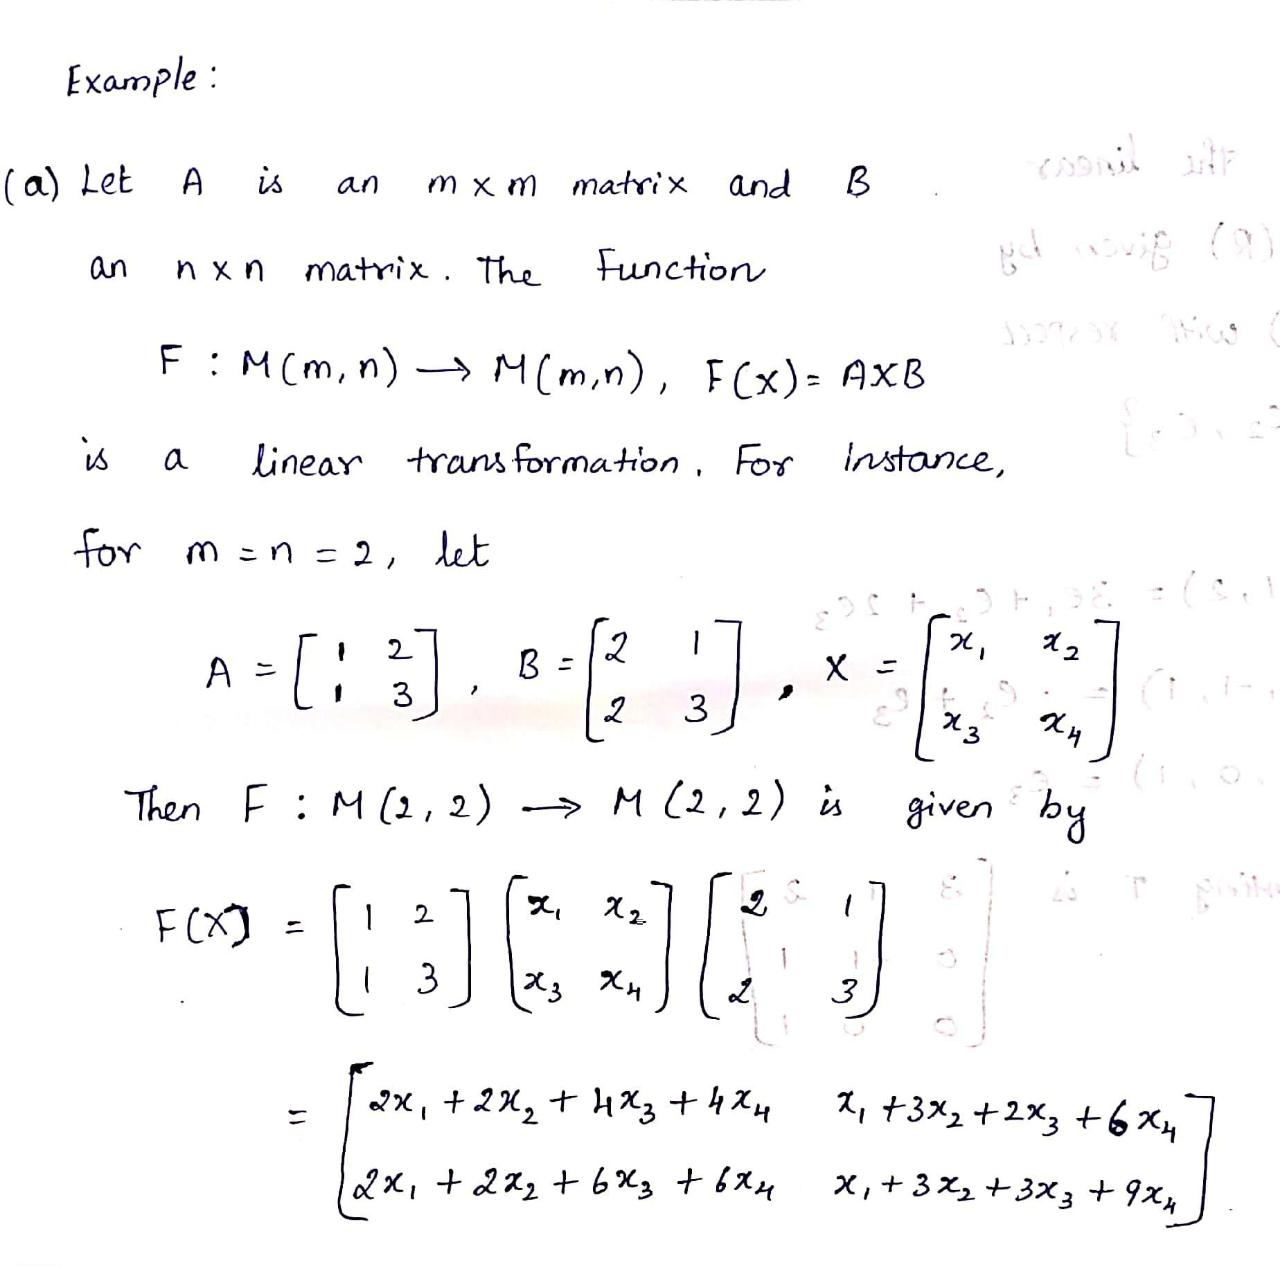 Example:
(a) Let A is an m x m matrix and B
an n x n matrix. The Function
F : M(m,n) → M(m,n), F(x) = AXB
is a linear transformation. For instance,
for m = n = 2, let
A = [1 2; 1 3], B = [2 1; 2 3], X = [x₁ x₂; x₃ x₄]
Then F : M(2,2) → M(2,2) is given by
F(X) = [1 2; 1 3] [x₁ x₂; x₃ x₄] [2 1; 2 3]
= [2x₁ + 2x₂ + 4x₃ + 4x₄ x₁ + 3x₂ + 2x₃ + 6x₄
2x₁ + 2x₂ + 6x₃ + 6x₄ x₁ + 3x₂ + 3x₃ + 9x₄]